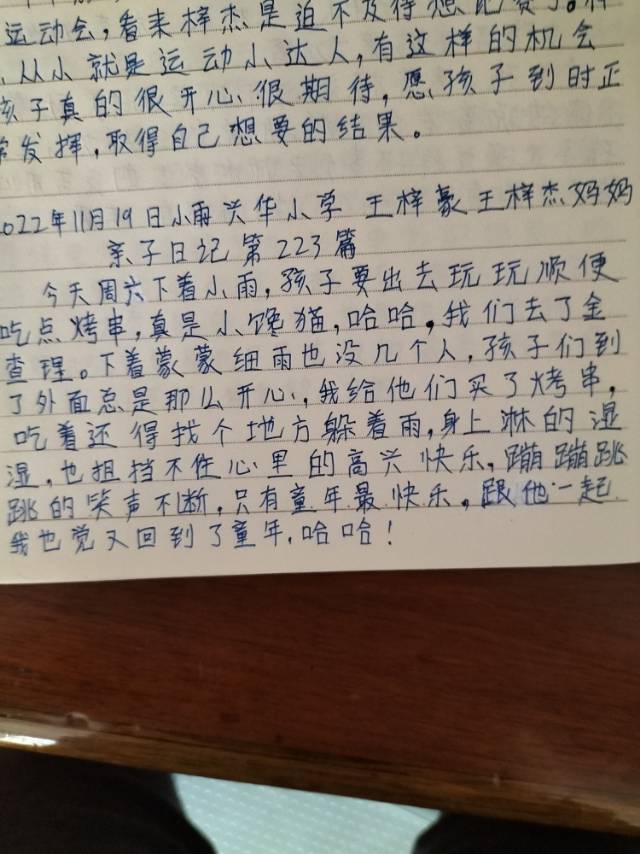 运动会，看来梓杰是迫不及待想比赛了。
，从小就是运动小达人，有这样的机会
孩子真的很开心、很期待，愿孩子到时正
常发挥，取得自己想要的结果。
2022年11月19日小雨兴华小学 王梓豪王梓杰妈妈
亲子日记第223篇
今天周六下着小雨，孩子要出去玩玩顺便
吃点烤串，真是小馋猫，哈哈，我们去了金
查理。下着蒙蒙细雨也没几个人，孩子们到
了外面总是那么开心，我给他们买了烤串，
吃着还得找个地方躲着雨，身上淋的湿
湿，也担挡不住心里的高兴快乐，蹦蹦跳
跳的笑声不断，只有童年最快乐，跟他一起
我也觉又回到了童年，哈哈！